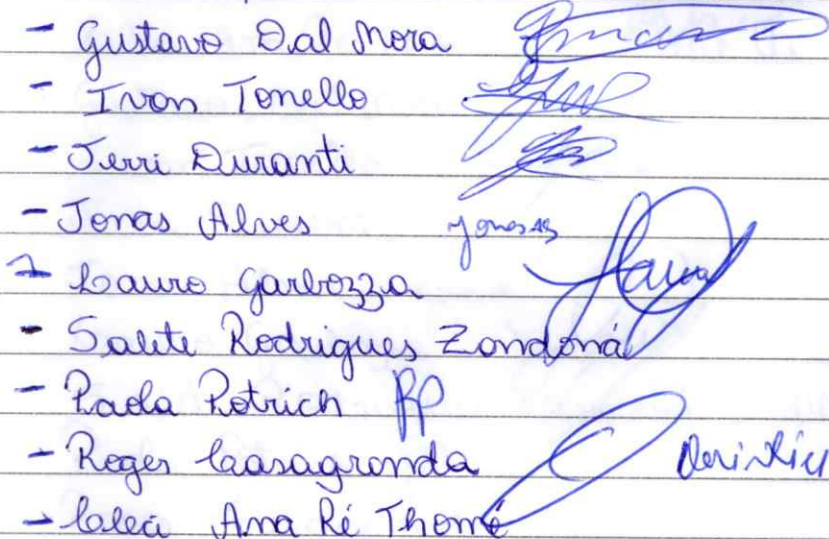 - Gustavo Dal Mora
- Ivan Tonello
- Jerri Duranti
- Jonas Alves Jonas AS
- Lauro Garbozza
- Salete Rodrigues Zandoná
- Paola Potrich PP
- Roger Casagranda
- Cleci Ana Ré Thomé